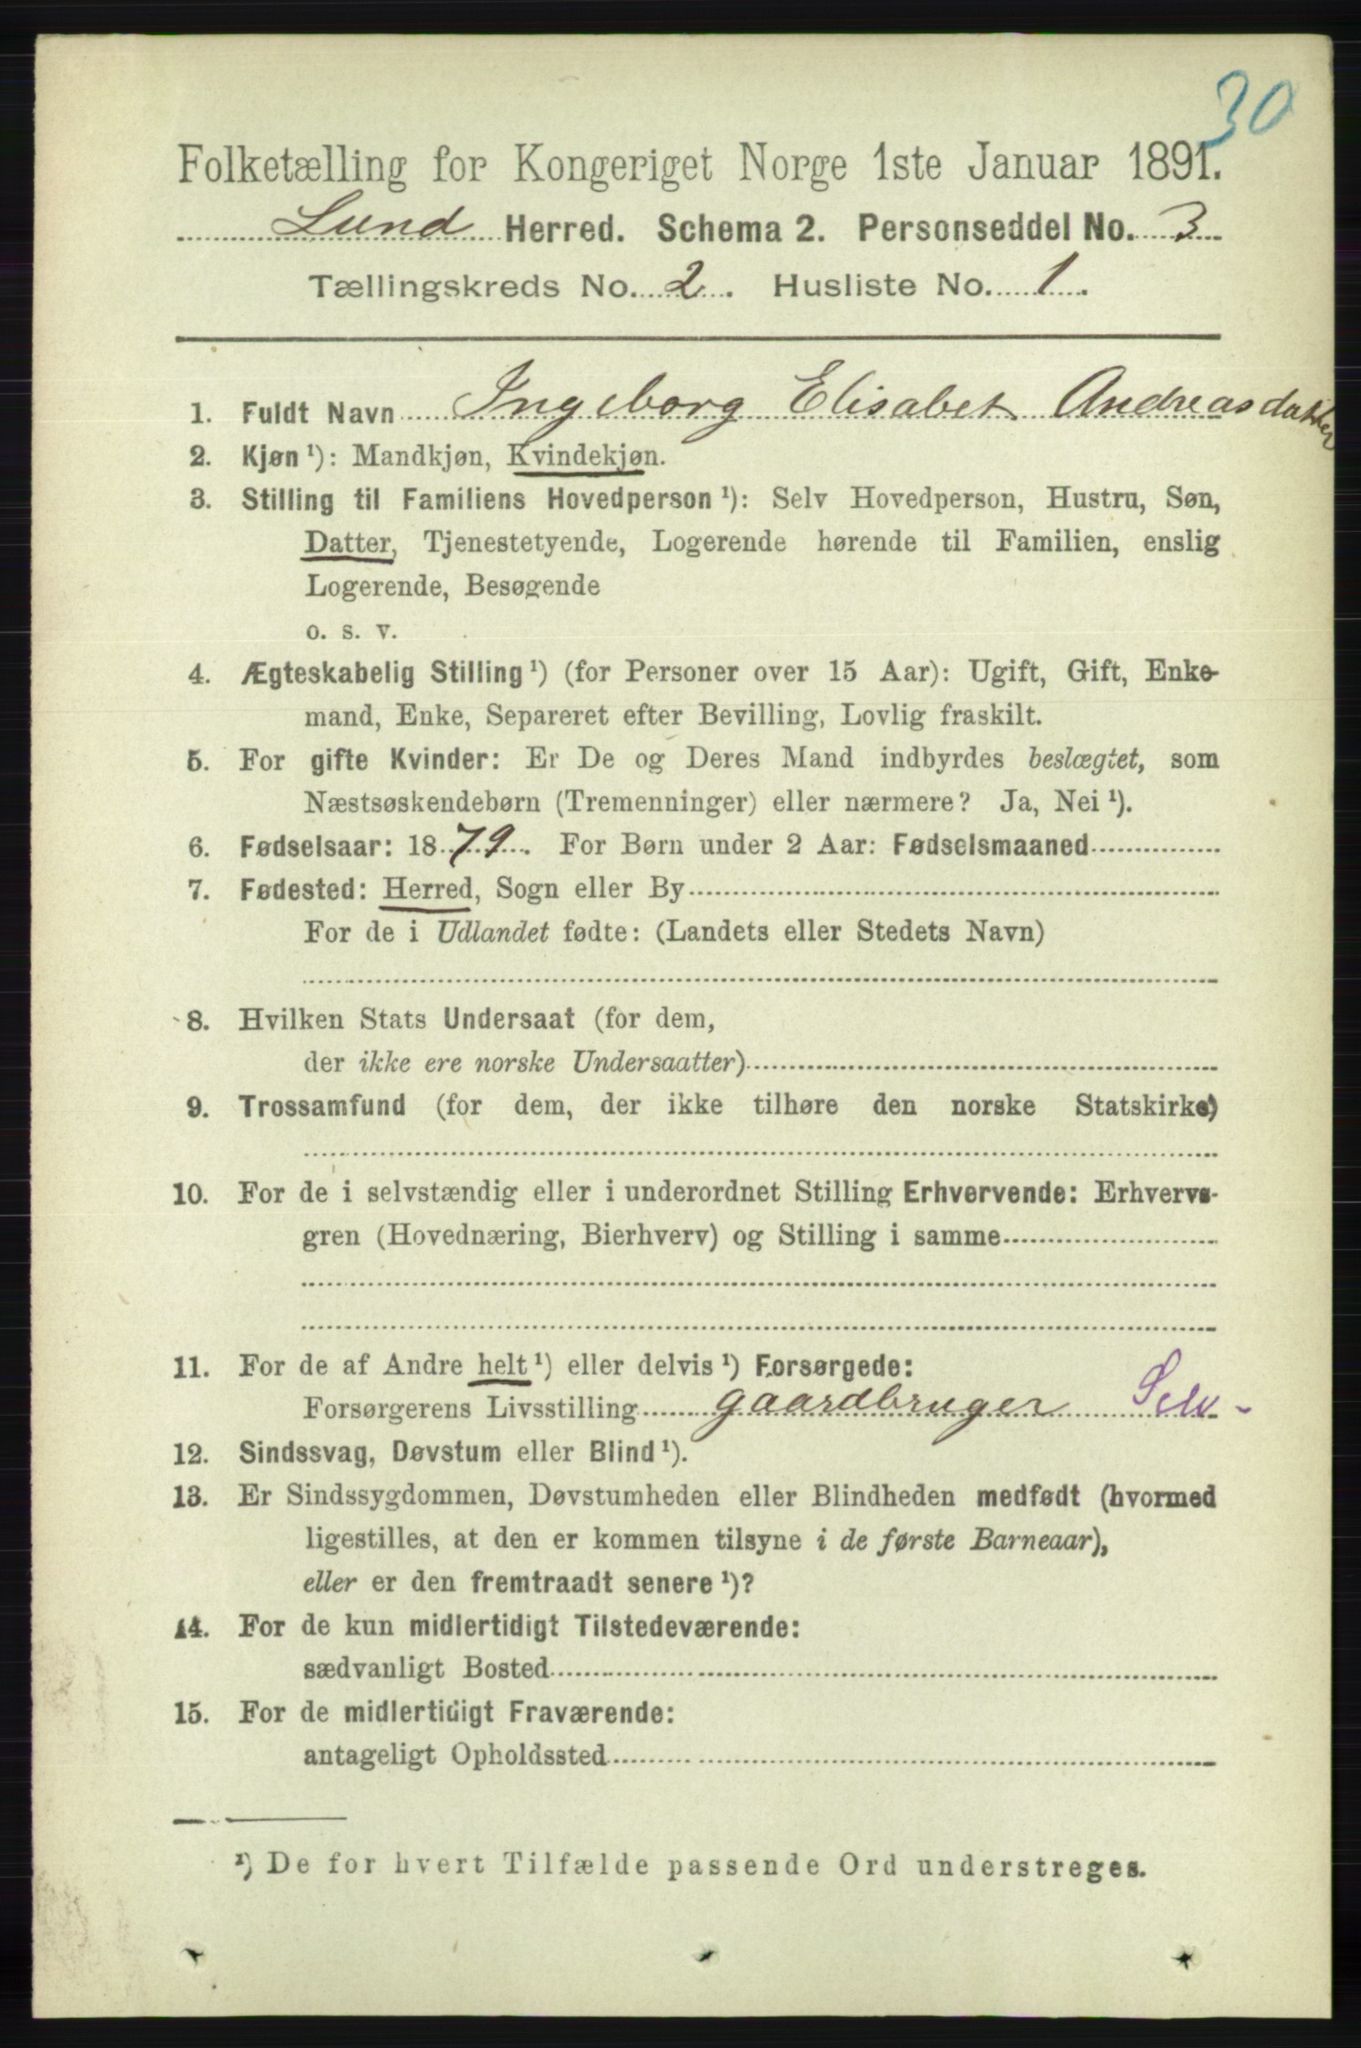 30
Folketælling for Kongeriget Norge 1ste Januar 1891.
Lund Herred. Schema 2. Personseddel No. 3
Tællingskreds No. 2. Husliste No. 1.
1. Fuldt Navn Ingeborg Elisabet Andreasdatter
2. Kjøn ¹): Mandkjøn, Kvindekjøn.
3. Stilling til Familiens Hovedperson ¹): Selv Hovedperson, Hustru, Søn,
Datter, Tjenestetyende, Logerende hørende til Familien, enslig
Logerende, Besøgende
o. s. v.
4. Ægteskabelig Stilling ¹) (for Personer over 15 Aar): Ugift, Gift, Enke-
mand, Enke, Separeret efter Bevilling, Lovlig fraskilt.
5. For gifte Kvinder: Er De og Deres Mand indbyrdes beslægtet, som
Næstsøskendebørn (Tremenninger) eller nærmere? Ja, Nei ¹).
6. Fødselsaar: 1879. For Børn under 2 Aar: Fødselsmaaned
7. Fødested: Herred, Sogn eller By
For de i Udlandet fødte: (Landets eller Stedets Navn)
8. Hvilken Stats Undersaat (for dem,
der ikke ere norske Undersaatter)
9. Trossamfund (for dem, der ikke tilhøre den norske Statskirke)
10. For de i selvstændig eller i underordnet Stilling Erhvervende: Erhvervs-
gren (Hovednæring, Bierhverv) og Stilling i samme
11. For de af Andre helt ¹) eller delvis ¹) Forsørgede:
Forsørgerens Livsstilling gaardbruger Selv-
12. Sindssvag, Døvstum eller Blind ¹).
13. Er Sindssygdommen, Døvstumheden eller Blindheden medfødt (hvormed
ligestilles, at den er kommen tilsyne i de første Barneaar),
eller er den fremtraadt senere ¹)?
14. For de kun midlertidigt Tilstedeværende:
sædvanligt Bosted
15. For de midlertidigt Fraværende:
antageligt Opholdssted
¹) De for hvert Tilfælde passende Ord understreges.